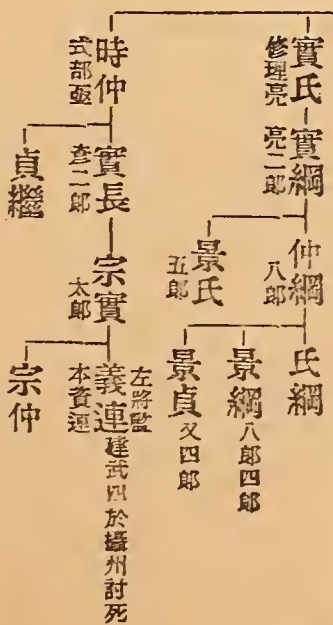 實氏
修理亮
實綱
亮二郎
仲綱
八郎
氏綱
景綱
八郎四郎
景貞
又四郎
景氏
五郎
時仲
式部丞
實長
彥二郎
宗實
太郎
義連
左將監
本資連
建武四於攝州討死
宗仲
貞繼